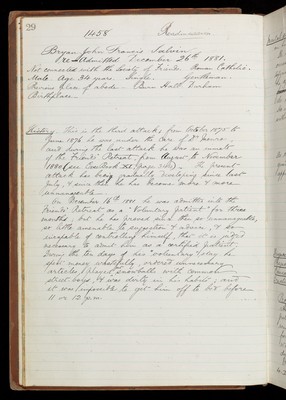 29
1458
Readmission
Bryan John Francis Salvin
Re-Admitted December 26th 1881.
Not connected with the Society of Friends. Roman Catholic.
Male. Age 34 years. Single. Gentleman.
Previous place of abode. Burn Hall. Durham
Birthplace
History. This is the third attack; from October 1875 to
June 1876 he was under the care of Dr
and during the last attack he was an inmate
of the Friends' Retreat, from August to November
1880 (see Case Book page). The present
attack has been gradually developing since last
July, & since then he has become more & more
unmanageable.
On December 16th 1881 he was admitted into the
Friends' Retreat as a "Voluntary patient" for three
months, but as he proved such then so unmanageable,
so little amenable to suggestion & advice, & so
incapable of controlling himself that it is judged
necessary to admit him as a certified patient.
During the ten days of his "voluntary" stay he
spent money wastefully, ordered unnecessary
articles, played snowballs with common
street boys, & was dirty in his habits, and
it was impossible to get him off to bed before
11 or 12 p.m.